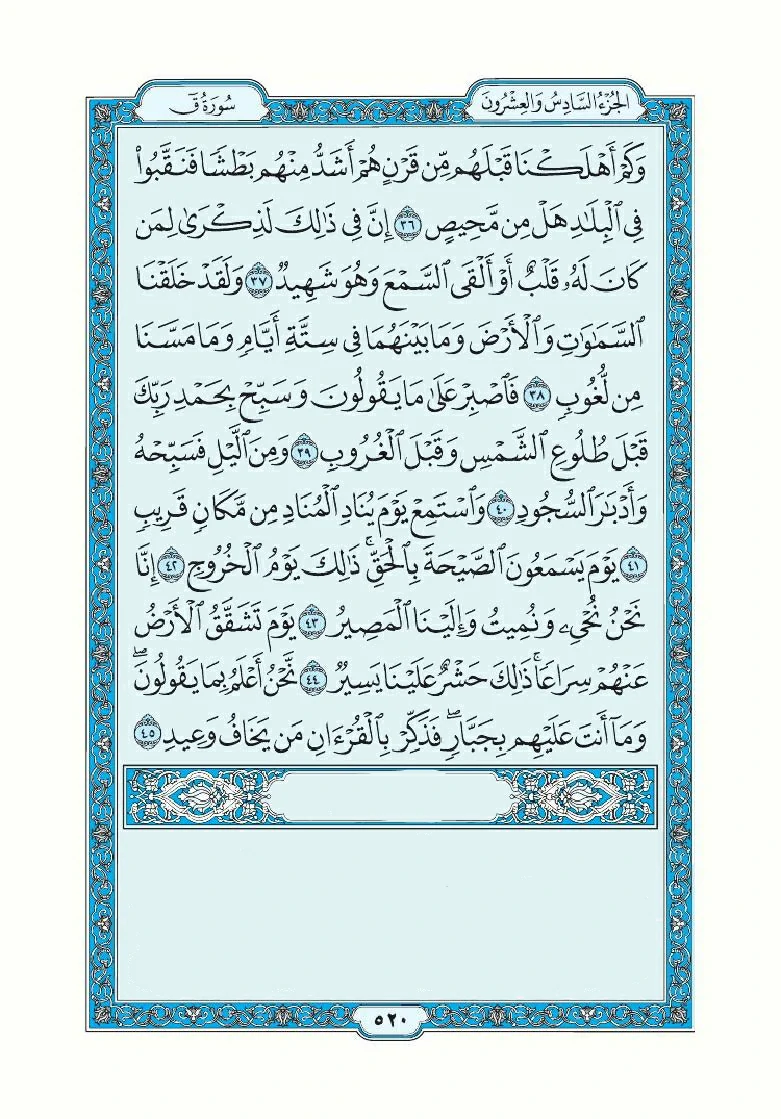 الجزء السادس والعشرون
سورة ق
وَكَمْ أَهْلَكْنَا قَبْلَهُم مِّن قَرْنٍ هُمْ أَشَدُّ مِنْهُم بَطْشًا فَنَقَّبُوا۟
فِى ٱلْبِلَـٰدِ هَلْ مِن مَّحِيصٍ ٣٦ إِنَّ فِى ذَٰلِكَ لَذِكْرَىٰ لِمَن
كَانَ لَهُۥ قَلْبٌ أَوْ أَلْقَى ٱلسَّمْعَ وَهُوَ شَهِيدٌ ٣٧ وَلَقَدْ خَلَقْنَا
ٱلسَّمَـٰوَٰتِ وَٱلْأَرْضَ وَمَا بَيْنَهُمَا فِى سِتَّةِ أَيَّامٍ وَمَا مَسَّنَا
مِن لُّغُوبٍ ٣٨ فَٱصْبِرْ عَلَىٰ مَا يَقُولُونَ وَسَبِّحْ بِحَمْدِ رَبِّكَ
قَبْلَ طُلُوعِ ٱلشَّمْسِ وَقَبْلَ ٱلْغُرُوبِ ٣٩ وَمِنَ ٱلَّيْلِ فَسَبِّحْهُ
وَأَدْبَـٰرَ ٱلسُّجُودِ ٤٠ وَٱسْتَمِعْ يَوْمَ يُنَادِ ٱلْمُنَادِ مِن مَّكَانٍ قَرِيبٍ
٤١ يَوْمَ يَسْمَعُونَ ٱلصَّيْحَةَ بِٱلْحَقِّ ۚ ذَٰلِكَ يَوْمُ ٱلْخُرُوجِ ٤٢ إِنَّا
نَحْنُ نُحْىِۦ وَنُمِيتُ وَإِلَيْنَا ٱلْمَصِيرُ ٤٣ يَوْمَ تَشَقَّقُ ٱلْأَرْضُ
عَنْهُمْ سِرَاعًا ۚ ذَٰلِكَ حَشْرٌ عَلَيْنَا يَسِيرٌ ٤٤ نَّحْنُ أَعْلَمُ بِمَا يَقُولُونَ ۖ
وَمَآ أَنتَ عَلَيْهِم بِجَبَّارٍ ۖ فَذَكِّرْ بِٱلْقُرْءَانِ مَن يَخَافُ وَعِيدِ ٤٥
٥٢٠